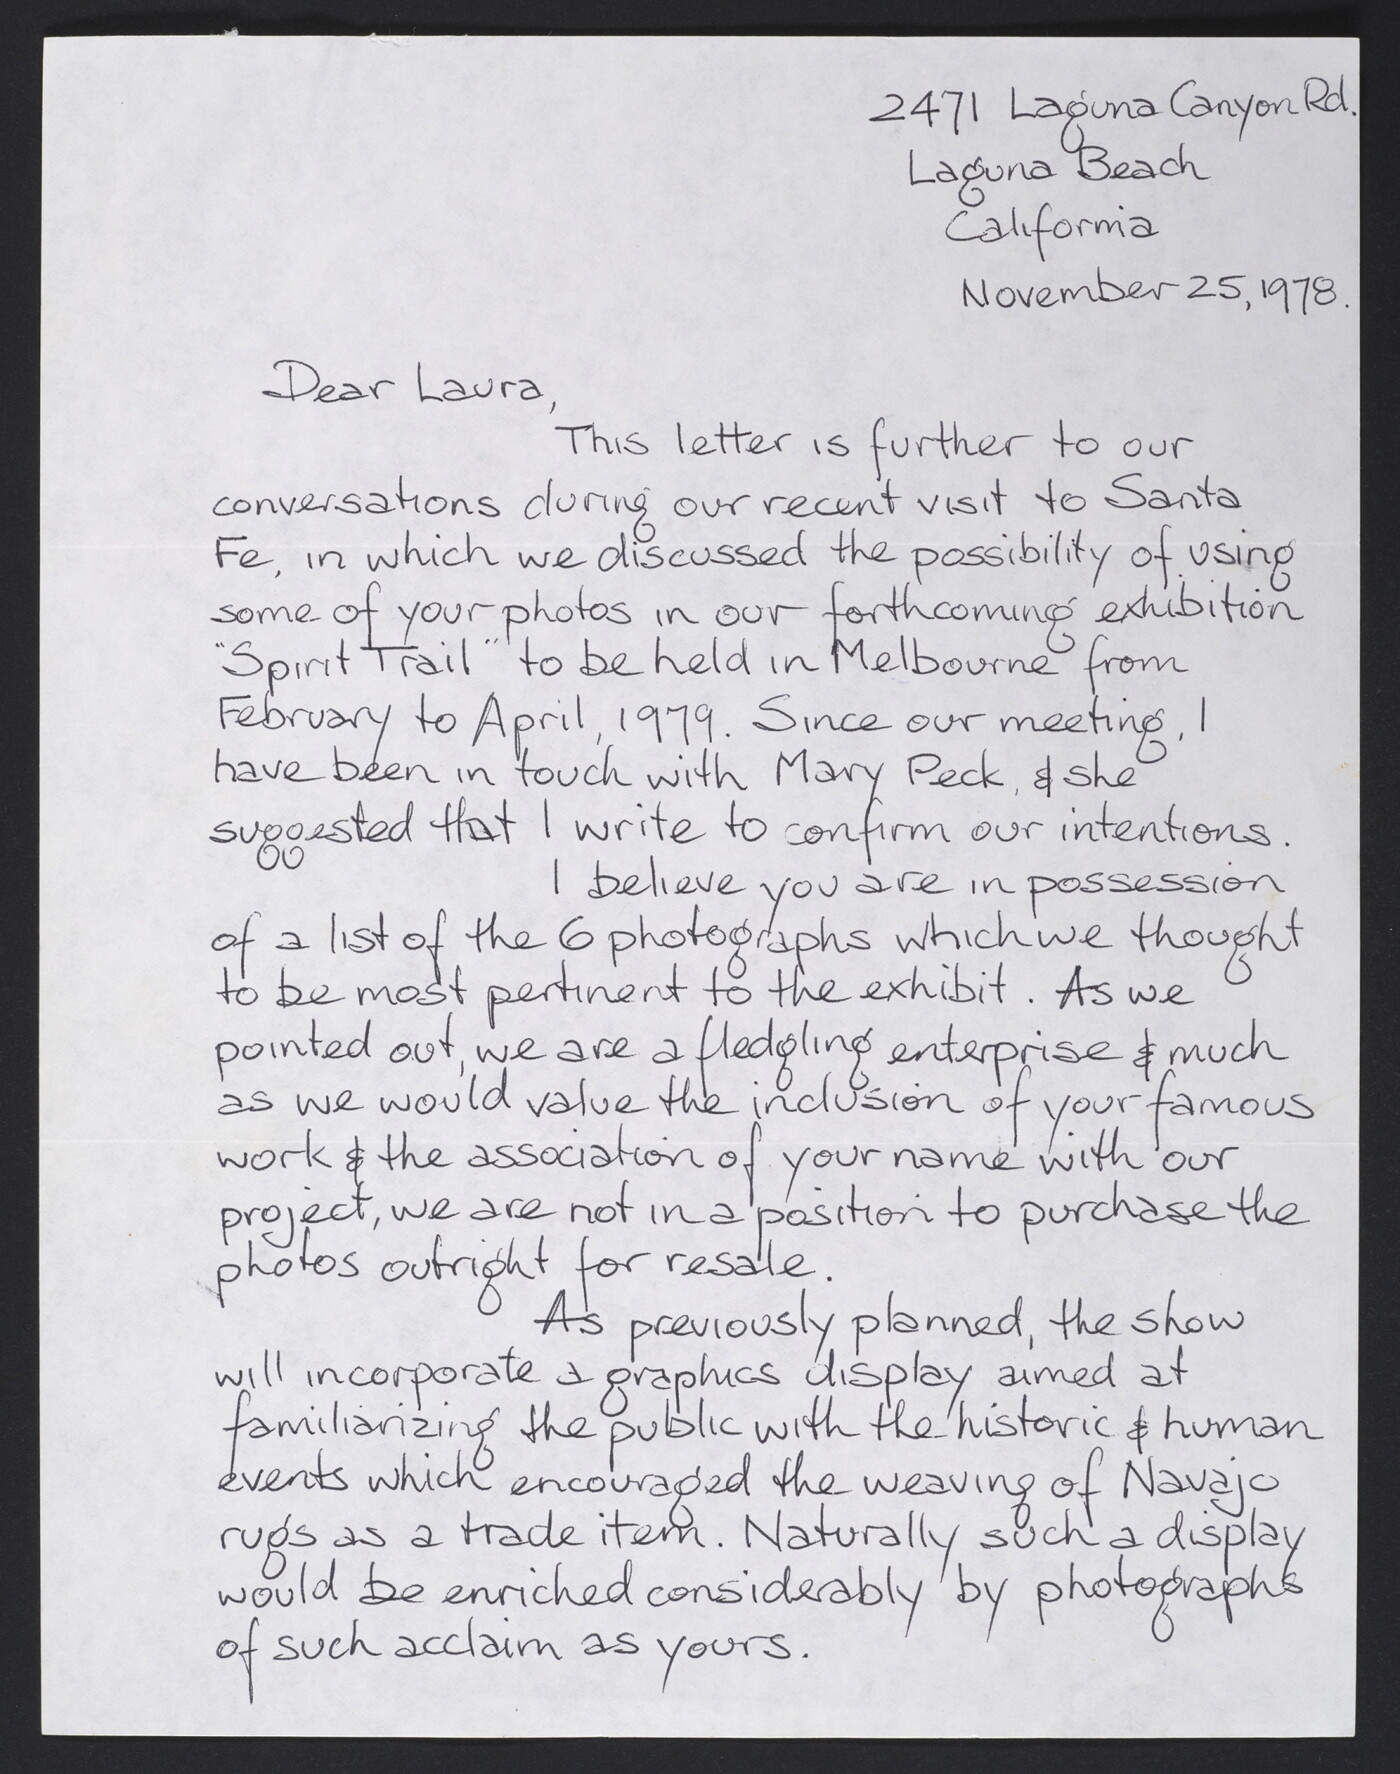 2471 Laguna Canyon Rd.
Laguna Beach
California
November 25, 1978.
Dear Laura,
This letter is further to our
conversations during our recent visit to Santa
Fe, in which we discussed the possibility of using
some of your photos in our forthcoming exhibition
"Spirit Trail" to be held in Melbourne from
February to April, 1979. Since our meeting, I
have been in touch with Mary Peck, & she
suggested that I write to confirm our intentions.
I believe you are in possession
of a list of the 6 photographs which we thought
to be most pertinent to the exhibit. As we
pointed out, we are a fledgling enterprise & much
as we would value the inclusion of your famous
work & the association of your name with our
project, we are not in a position to purchase the
photos outright for resale.
As previously planned, the show
will incorporate a graphics display aimed at
familiarizing the public with the historic & human
events which encouraged the weaving of Navajo
rugs as a trade item. Naturally such a display
would be enriched considerably by photographs
of such acclaim as yours.